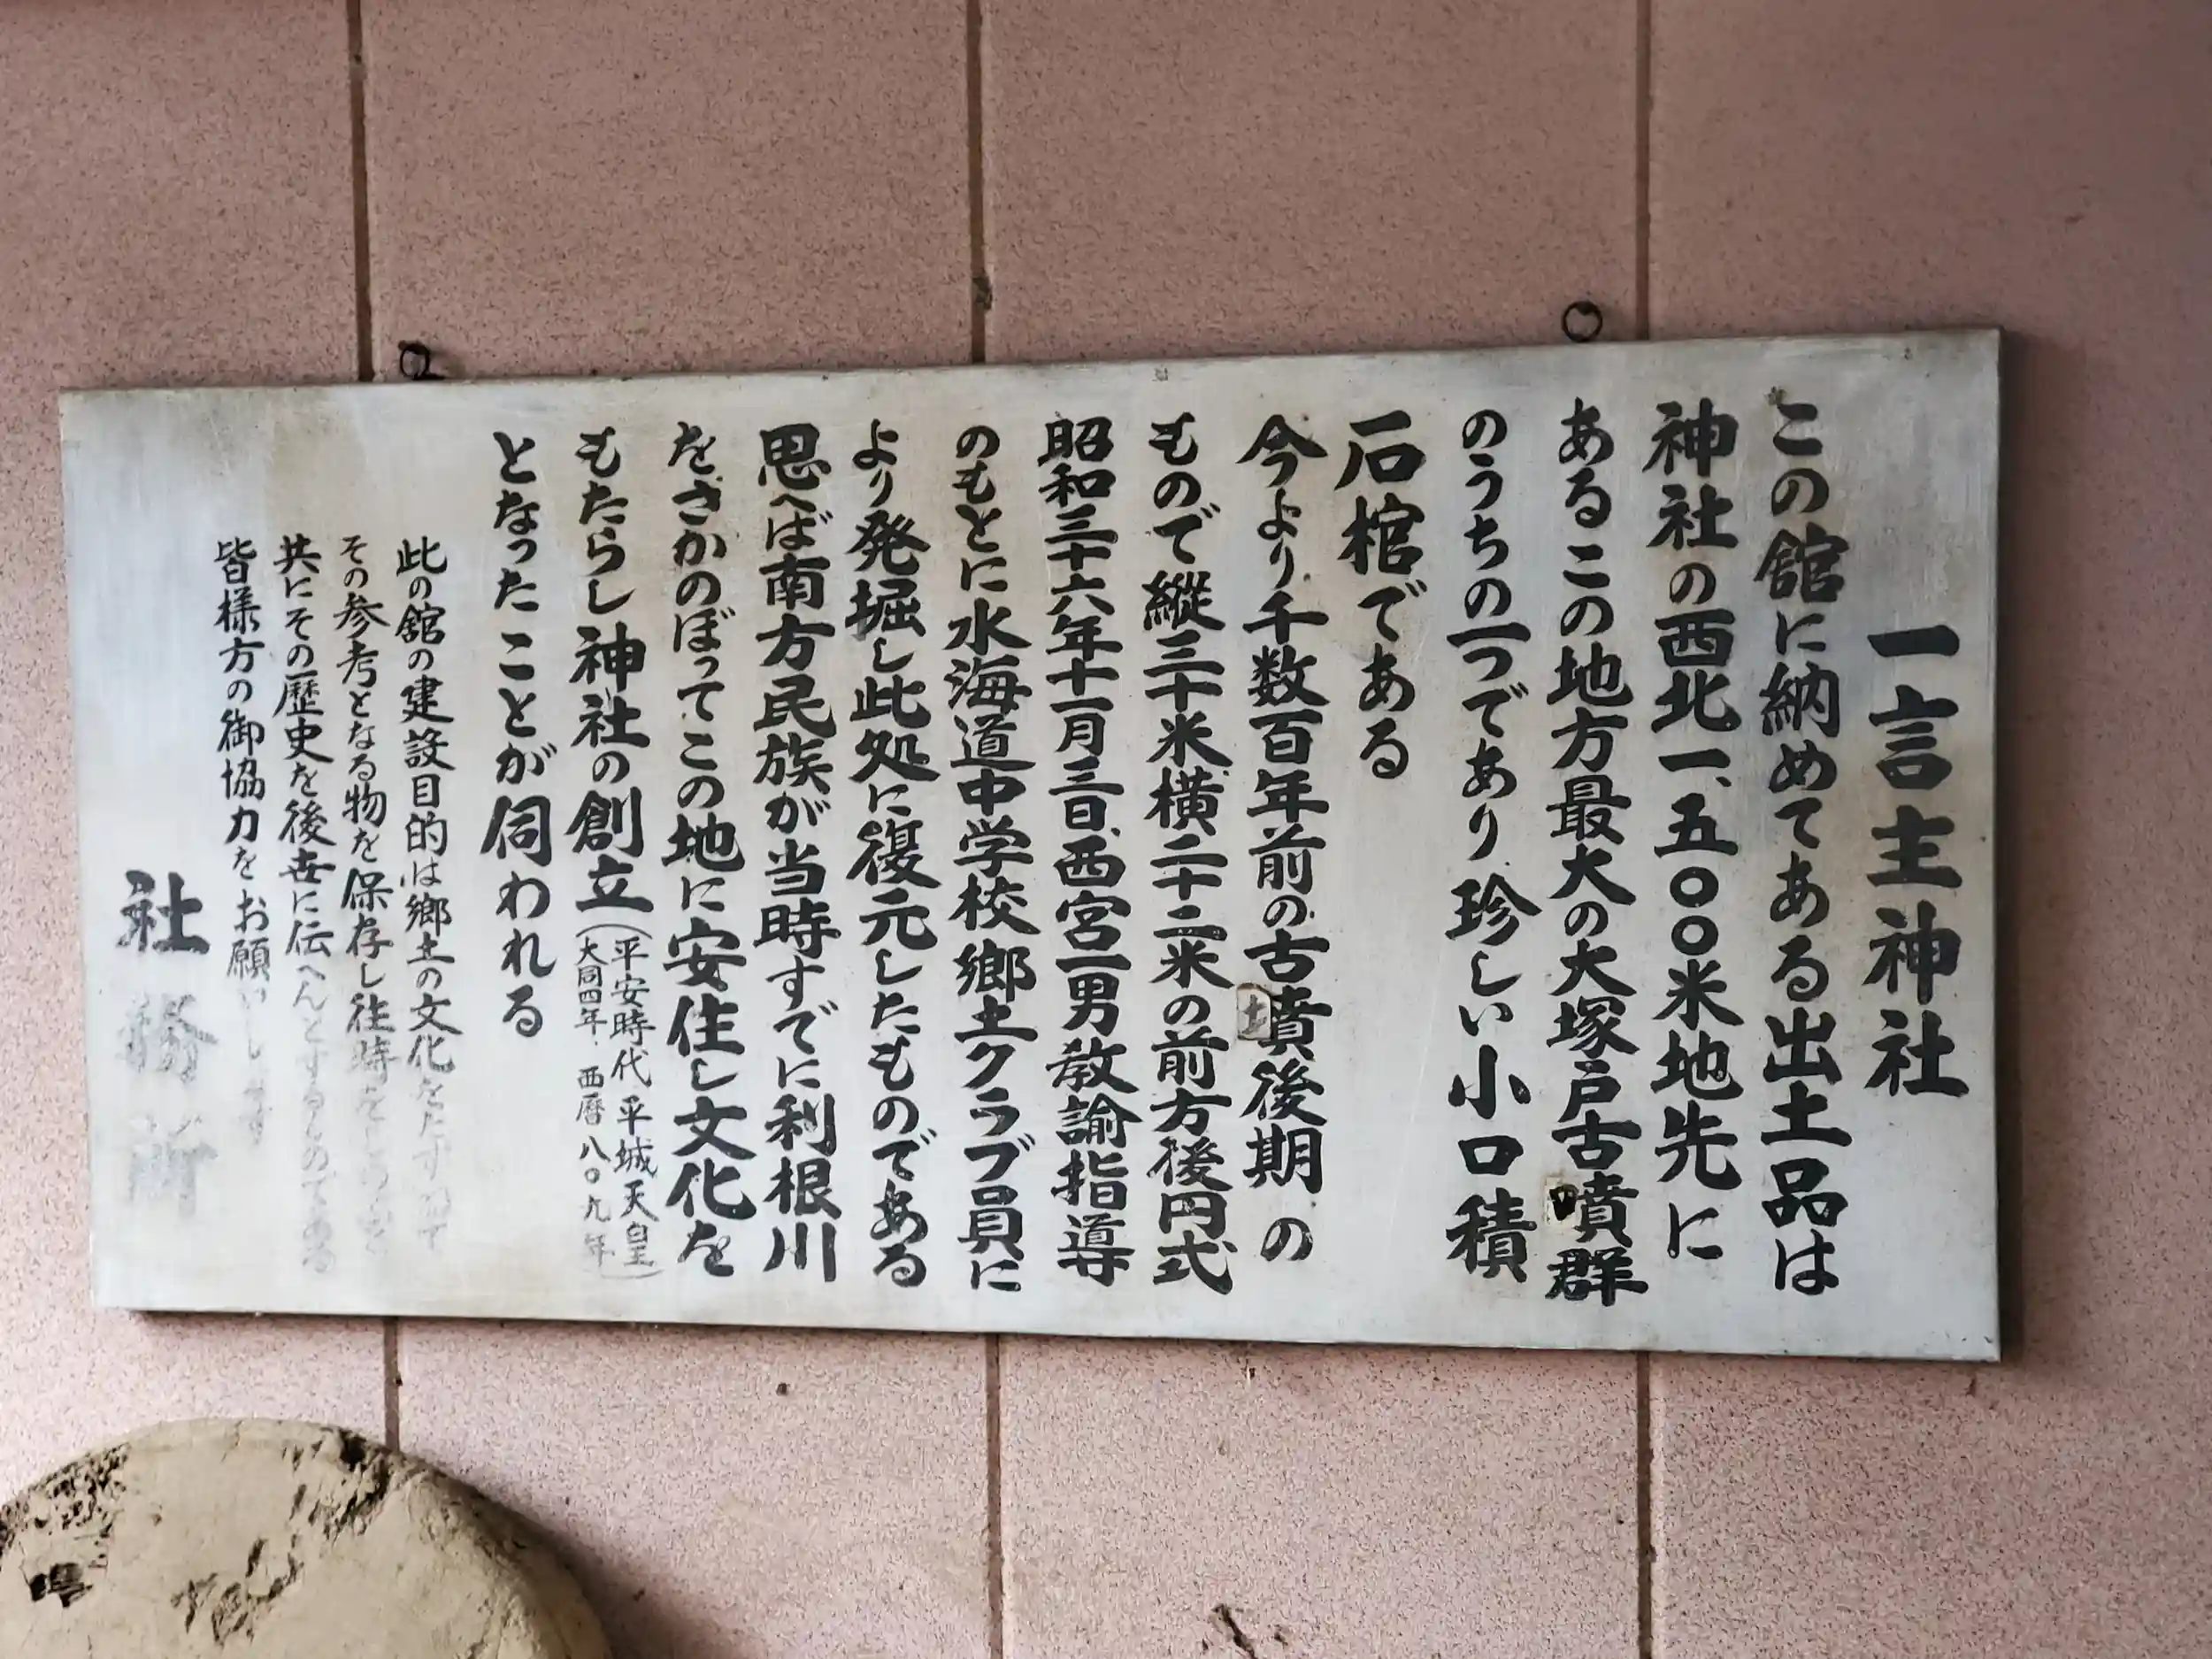 一言主神社
この館に納めてある出土品は
神社の西北一、五〇〇米地先に
あるこの地方最大の大塚戸古墳群
のうちの一つであり珍しい小口積
石棺である
今より千数百年前の古墳後期の
もので縦三十米横二十二米の前方後円式
昭和三十六年十一月三日、西宮一男教諭指導
のもとに水海道中学校郷土クラブ員に
より発掘し此処に復元したものである
思へば南方民族が当時すでに利根川
をさかのぼってこの地に安住し文化を
もたらし神社の創立（平安時代 平城天皇
大同四年 西暦八〇九年）
となったことが伺われる
此の館の建設目的は郷土の文化をたずねて
その参考となる物を保存し往時を
共にその歴史を後世に伝へんとするものである
皆様方の御協力をお願いします
社務所